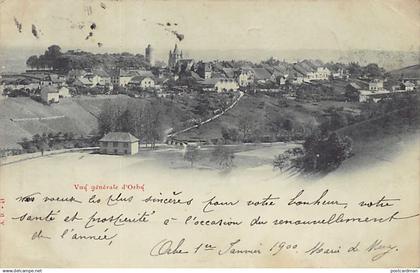 Vue générale d'Orbe
Nos voeux les plus sincères pour votre bonheur, votre
santé et prospérité à l'occasion du renouvellement
de l'année,
Orbe 1er Janvier 1900 Marie de